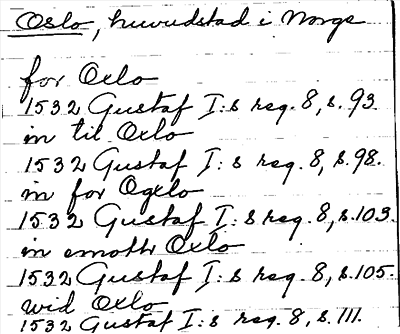 Oslo, huvudstad i Norge
for Oxlo
1532 Gustaf I:s reg. 8, s. 93.
in til Oxlo
1532 Gustaf I:s reg. 8, s. 98.
in for Ogxlo
1532 Gustaf I:s reg. 8, s. 103.
in emoth Oxlo
1532 Gustaf I:s reg. 8, s. 105.
wid Oxlo
1532 Gustaf I:s reg. 8, s. 111.